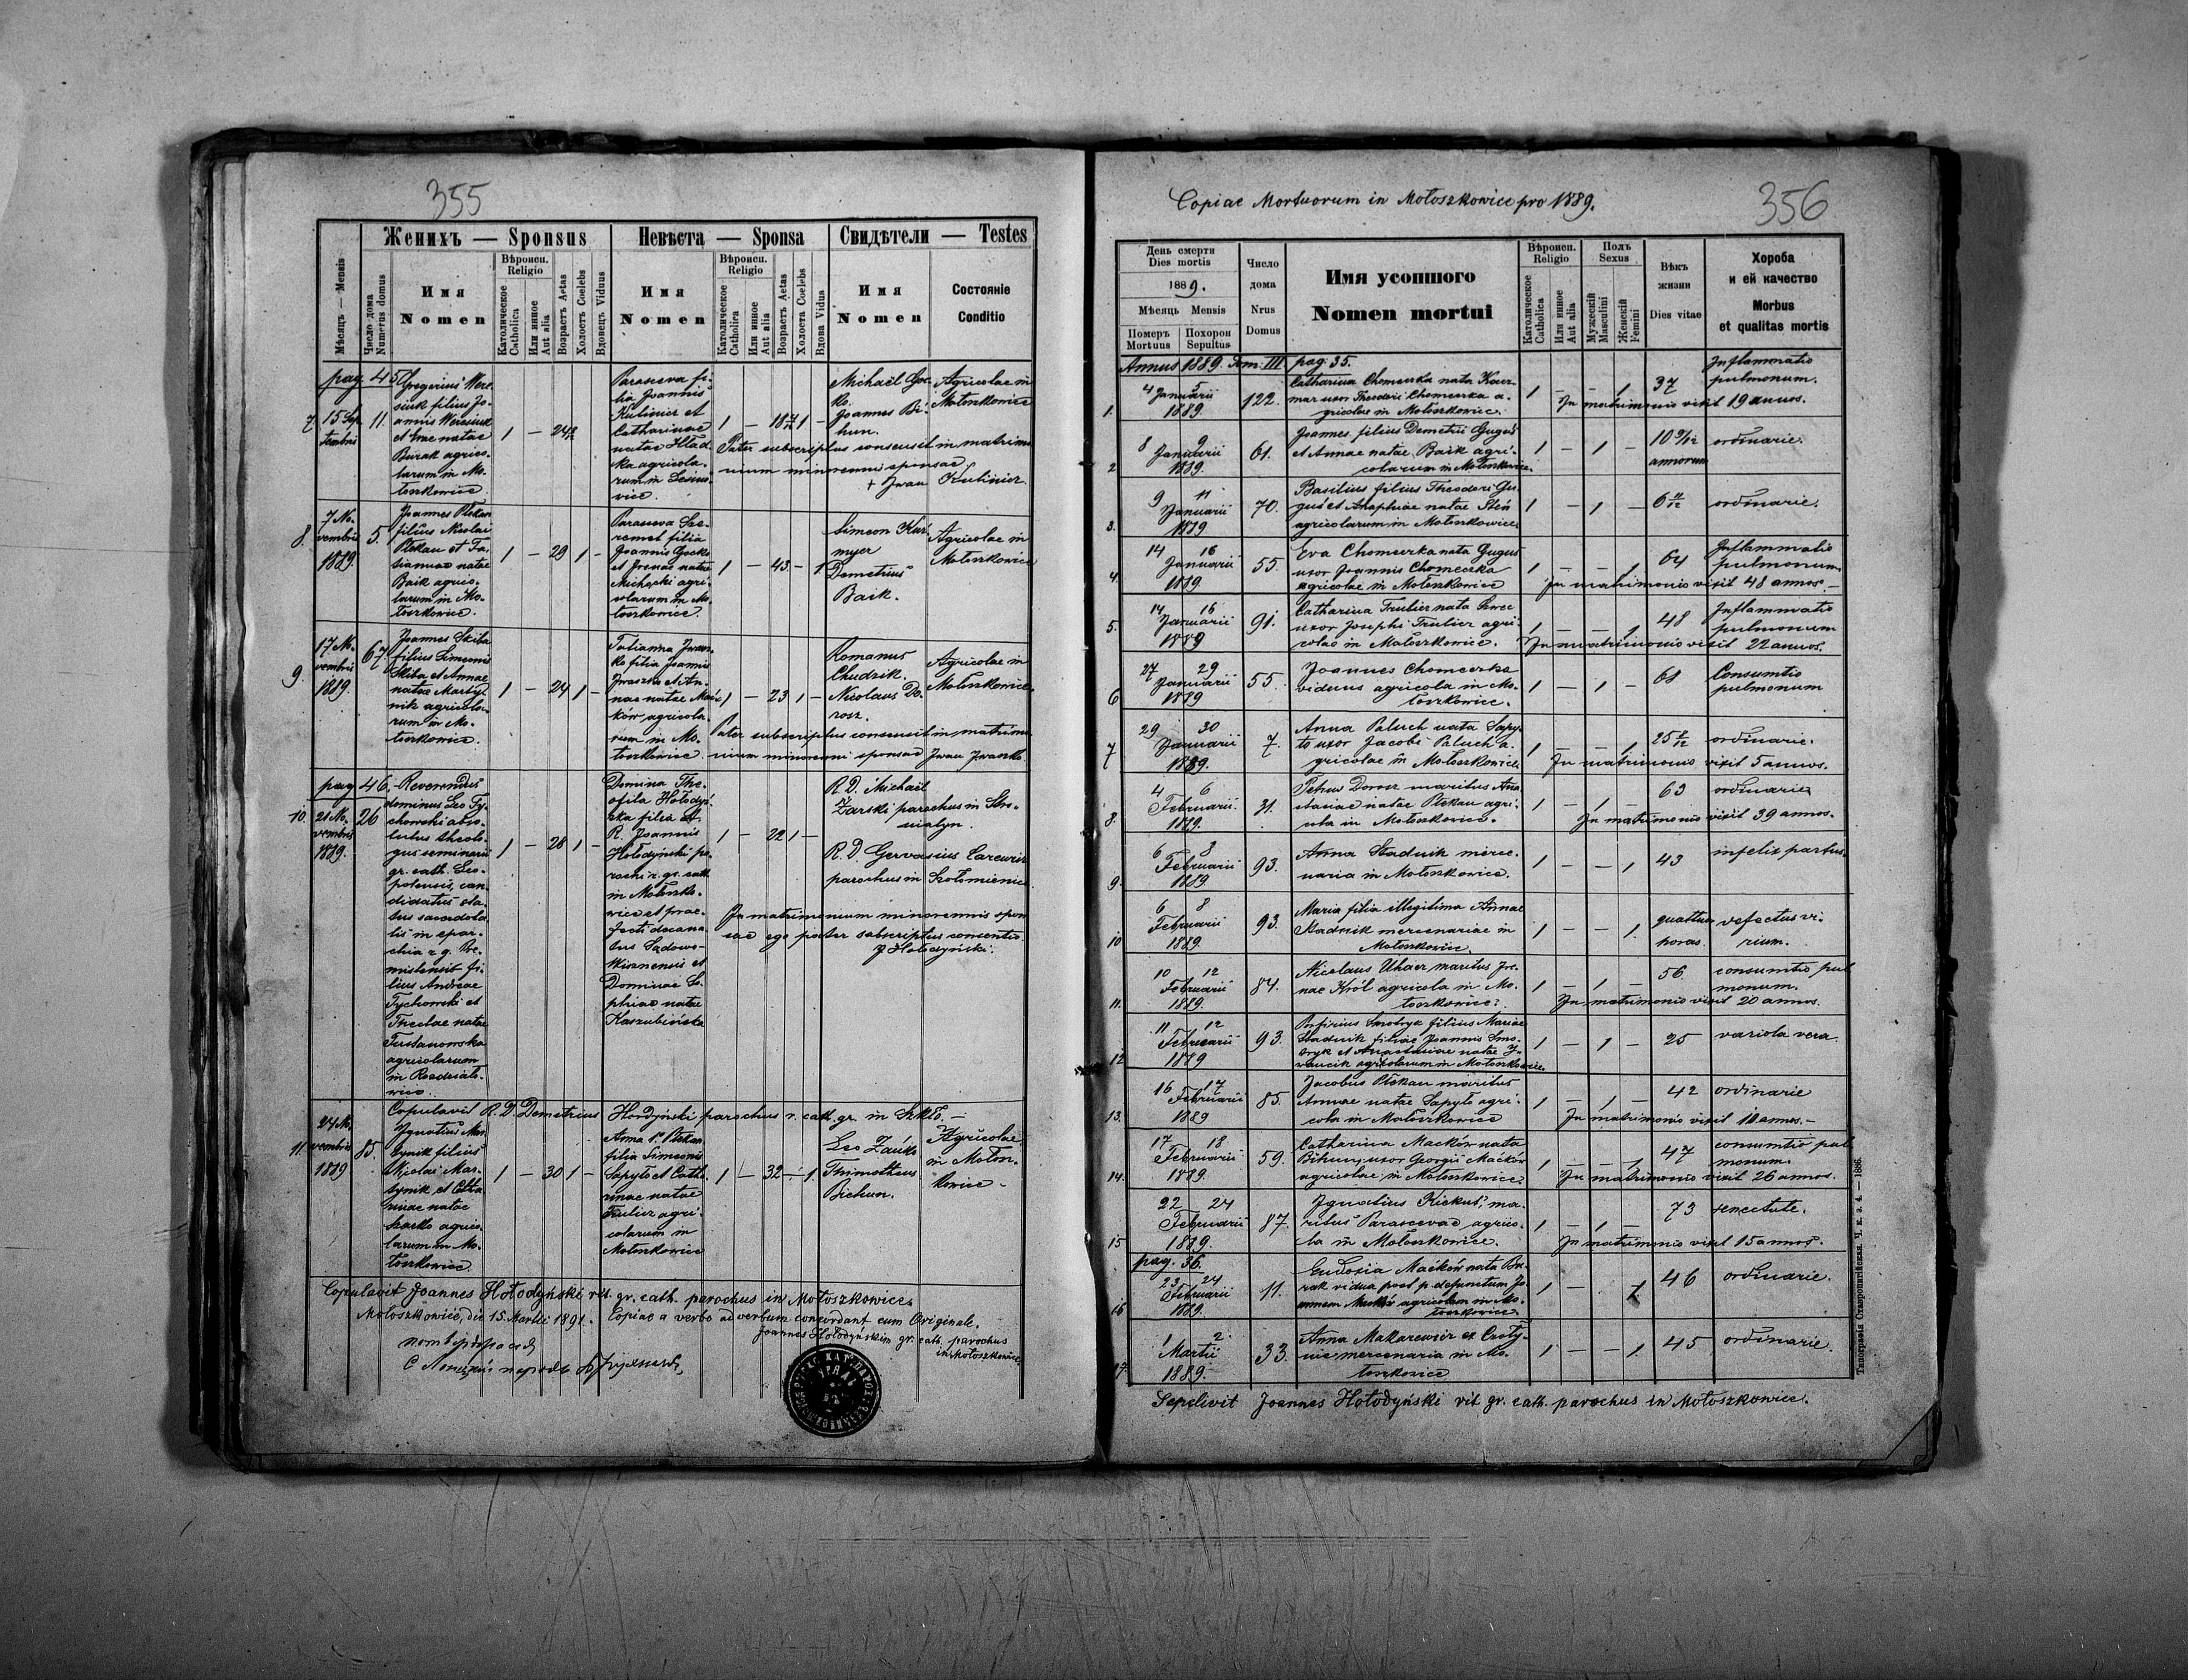 355
Женихъ — Sponsus
Невѣста — Sponsa
Свидѣтели — Testes
Мѣсяцъ — Mensis
Число дома
Numerus domus
Имя
Nomen
Вѣроисп.
Religio
Католическое
Catholica
Или инное
Aut alia
Возрастъ Aetas
Холостъ Coelebs
Вдовецъ Viduus
Имя
Nomen
Вѣроисп.
Religio
Католическое
Catholica
Или инное
Aut alia
Возрастъ Aetas
Холоста Coelebs
Вдова Vidua
Имя
Nomen
Состояніе
Conditio
pag. 45
7.
15 Sep
tembris
11.
Gregorius Were
siuk filius Jo
annis Weresiuk
et Irenae natae
Burak agrico
larum in Mo
łoszkowice
1 —
Parasceva fi
lia Joannis
Kulinicz et
Catharinae
natae Hład
ka agricola
rum in
1 —
Michaël
Joannes Bi
hun.
Agricolae in
Mołoszkowice
Pater subscriptus consensit in matrimo
nium minorenni sponsae
+ Iwan Kulinicz
8.
7 No
vembris
1889.
5.
Joannes Ptekan
filius Nicolai
Ptekan et Ta
tiannae natae
Baik agrico
larum in Mo
łoszkowice.
1 — 29 1 —
Parasceva Sze
remet filia
Joannis Gocko
et Irenae natae
agri
colarum in Mo
łoszkowice.
1 — 43 — 1
Simeon
Demetrius
Baik.
Agricolae in
Mołoszkowice
9.
17 No
vembris
1889.
67
Joannes Skiba
filius Simeonis
Skiba et Annae
natae Martyi
nik agricola
rum in Mo
łoszkowice.
1 — 24 1 —
Tatianna Iwan
ko filia Joannis
Iwaszko et An
nae natae Mac
ków agricola
rum in Mo
łoszkowice
1 — 23 1 —
Romanus
Chudzik.
Nicolaus Do
rosz.
Agricolae in
Mołoszkowice
Pater subscriptus consensit in matrimo
nium minorenni sponsae Iwan Iwanko
pag. 46.
10.
21 No
vembris
1889.
26
Reverendus
dominus Leo Ty
chowski abso
lutus theolo
gus seminarii
gr. cath. Leo
poliensis, can
didatus sta
tus sacerdota
lis in epar
chia r. g. Pre
misliensi fi
lius Andreae
Tychowski et
Theclae natae
Tustanowska
agricolarum
in Rozdziało
wice.
1 — 28 1 —
Domina The
ofila Hołodyń
ska filia A.
R. Joannis
Hołodyński pa
rochi r. gr. cath
in Mołoszko
wice et prae
fecti decana
tus Sadowo
Wisznensis et
Dominae So
phiae natae
Kaszubińska
1 — 22 1 —
R. D. Michaël
Żarski parochus in
R. D. Gervasius Carewicz
parochus in Szołomienice
In matrimonium minorennis spon
sae ego pater subscriptus consentio
J Hołodyński.
Copulavit R. D. Demetrius Hordyński parochus r. cath. gr. in Szkło. —
11.
24 No
vembris
1889
85.
Ignatius Mar
tynik filius
Nicolai Mar
tynik et Catha
rinae natae
agrico
larum in Mo
łoszkowice.
1 — 30 1 —
Anna Ptekan
filia Simeonis
Sapyło et Catha
rinae natae
Trulicz agri
colarum in
Mołoszkowice
1 — 32 — 1
Leo
Thimotheus
Bichun.
Agricolae
in Mołosz
kowice
Copulavit Joannes Hołodyński rit. gr. cath. parochus in Mołoszkowice.
Mołoszkowice, die 15. Martii 1891. Copiae a verbo ad verbum concordant cum Originale.
Joannes Hołodyński gr. cath. parochus
in Mołoszkowice
Copiae Mortuorum in Mołoszkowice pro 1889.
356
День смерти
Dies mortis
1889.
Мѣсяцъ Mensis
Померъ
Mortuus
Похорон
Sepultus
Число
дома
Nrus
Domus
Имя усопшого
Nomen mortui
Вѣроисп.
Religio
Католическое
Catholica
Или инное
Aut alia
Полъ
Sexus
Мужескій
Masculini
Женскій
Femini
Вѣкъ
жизни
Dies vitae
Хороба
и ей качество
Morbus
et qualitas mortis
Annus 1889. Tom. III. pag. 35.
1.
4 5
Januarii
1889.
122.
Catharina Chomeczka nata Kucz
mar uxor Theodori Chomeczka a
gricolae in Mołoszkowice.
1 — — 1
37
Inflammatio
pulmonum.
In matrimonio vixit 19 annos.
2
8 9
Januarii
1889.
61.
Joannes filius Demetrii Guguś
et Annae natae Baik agri
colarum in Mołoszkowice.
1 — 1 —
10 9/12
annorum
ordinarie.
3.
9 11
Januarii
1889
70.
Basilius filius Theodori Gu
guś et Anaphiae natae Steń
agricolarum in Mołoszkowice
1 — 1 —
ordinarie.
4.
14 16
Januarii
1889
55.
Eva Chomeczka nata Guguś
uxor Joannis Chomeczka
agricolae in Mołoszkowice
1 — — 1
64
Inflammatio
pulmonum
In matrimonio vixit 48 annos —
5.
14 16
Januarii
1889
91.
Catharina Trulicz nata Szwec
uxor Josephi Trulicz agri
colae in Mołoszkowice.
1 — — 1
48
Inflammatio
pulmonum
In matrimonio vixit 22 annos.
6
27 29
Januarii
1889
55
Joannes Chomeczka
viduus agricola in Mo
łoszkowice.
1 — 1 —
68
Consumtio
pulmonum
7
29 30
Januarii
1889.
7.
Anna Paluch nata Sapy
ło uxor Jacobi Paluch a
gricolae in Mołoszkowice
1 — — 1
ordinarie.
In matrimonio vixit 5 annos.
8.
4 6
Februarii
1889.
31.
Petrus Dorosz maritus Ana
staziae natae Ptekan agri
cola in Mołoszkowice.
1 — 1 —
63
ordinarie
In matrimonio vixit 39 annos.
9.
6 8
Februarii
1889
93.
Anna Stadnik merce
naria in Mołoszkowice.
1 — — 1
43
infelix partus.
10
6 8
Februarii
1889
93.
Maria filia illegitima Annae
Stadnik mercenariae in
Mołoszkowice.
1 — — 1.
quattuor
horas.
defectus vi
rium.
11.
10 12
Februarii
1889.
84.
Nicolaus Uhacz maritus Ire
nae Król agricola in Mo
łoszkowice.
1 — 1 —
56.
consumtio pul
monum.
In matrimonio vixit 20 annos.
12
11 12
Februarii
1889
93.
Porfirius Smotryk filius Mariae
Stadnik filiae Joannis Smo
tryk et Anastasiae natae I
wancik agricolarum in Mołoszkowice
1 — 1 —
25
variola vera
13.
16 17
Februarii
1889
85.
Jacobus Ptekan maritus
Annae natae Sapyło agri
cola in Mołoszkowice
1 — 1 —
42
ordinarie
In matrimonio vixit 18 annos. —
14.
17 18
Februarii
1889.
59.
Catharina Maćków nata
Bihun, uxor Georgii Maćków
agricolae in Mołoszkowice
1 — — 1
47
consumtio pul
monum.
In matrimonio vixit 26 annos.
15
22 24
Februarii
1889.
87.
Ignatius Kickut, ma
ritus Parascevae agrico
la in Mołoszkowice.
1 — 1 —
73
senectute.
In matrimonio vixit 15 annos.
pag. 36.
16
23 24
Februarii
1889.
11.
Eudoxia Maćków nata Bu
rak vidua post p. defunctum Jo
annem Maćków agricolam in Mo
łoszkowice
1 — 1
46
ordinarie.
17
1 2
Martii
1889.
33.
Anna Makarewicz ex Czoły
nie mercenaria in Mo
łoszkowice
1 — — 1
45
ordinarie.
Sepelivit Joannes Hołodyński rit gr. cath. parochus in Mołoszkowice.
Типографія Ставропигійская. Ч. к. з. 4. — 1886.